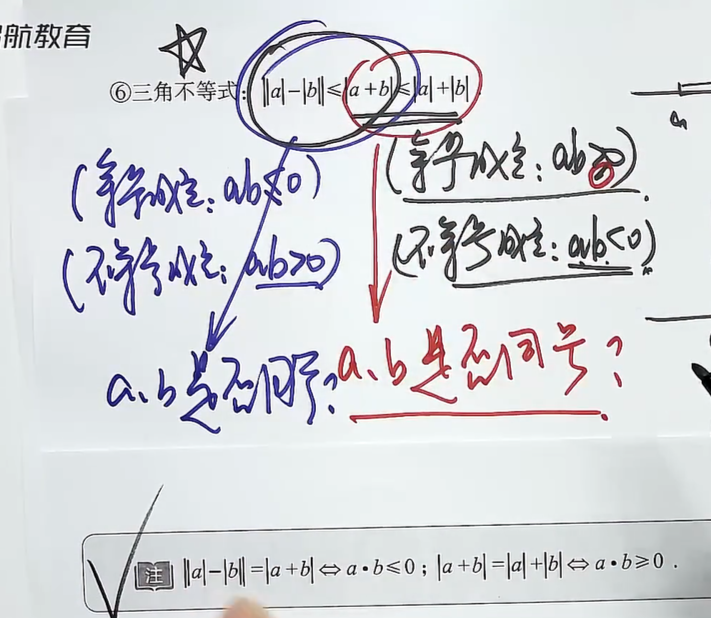 航教育
⑥三角不等式：||a|-|b||≤|a+b|≤|a|+|b|.
(等号成立：ab≤0)
(等号成立：ab≥0)
(不等号成立：ab>0)
(不等号成立：ab<0)
a、b是否同号？
a、b是否同号？
注 ||a|-|b||=|a+b|⇔a•b≤0；|a+b|=|a|+|b|⇔a•b≥0．